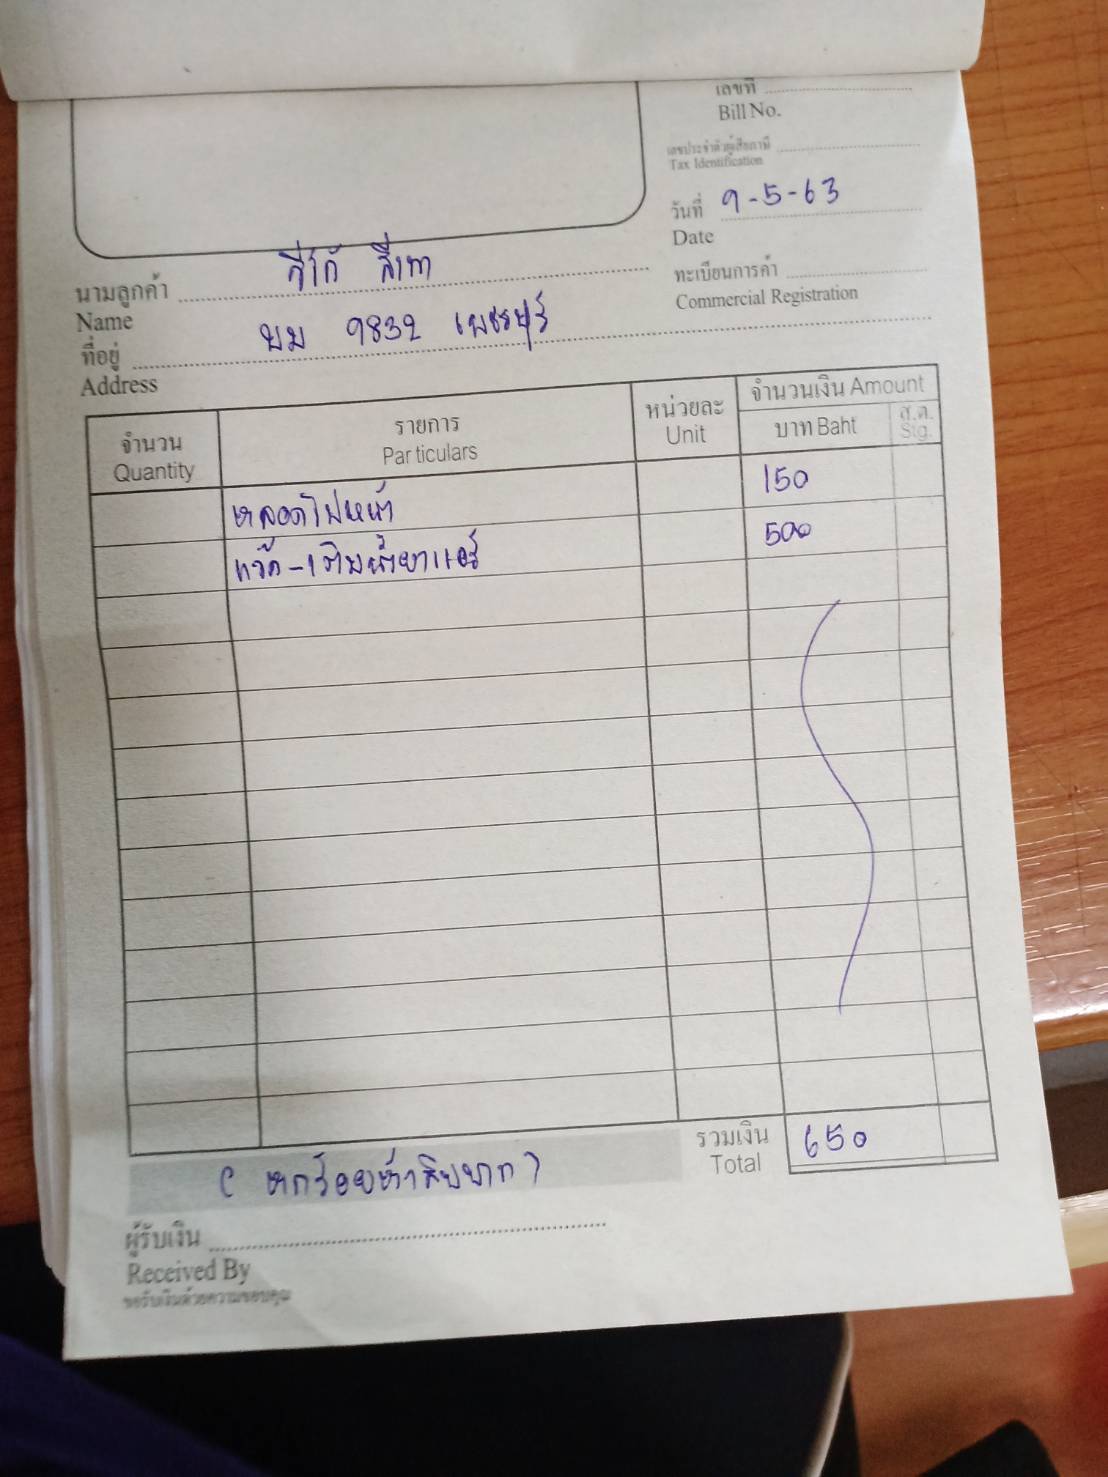 เลขที่
Bill No.
เลขประจำตัวผู้เสียภาษี
Tax Identification
วันที่ 9-5-63
Date
นามลูกค้า วีโก้ สีเทา
Name
ทะเบียนการค้า
Commercial Registration
ที่อยู่ บม 9832 เพชรบุรี
Address
จำนวน รายการ หน่วยละ จำนวนเงิน Amount
Quantity Particulars Unit บาท Baht ส.ต. Stg.
หลอดไฟหน้า 150
แว๊ค-เติมน้ำยาแอร์ 500
รวมเงิน 650
Total
( หกร้อยห้าสิบบาท )
ผู้รับเงิน
Received By
ขอรับเงินด้วยความขอบคุณ